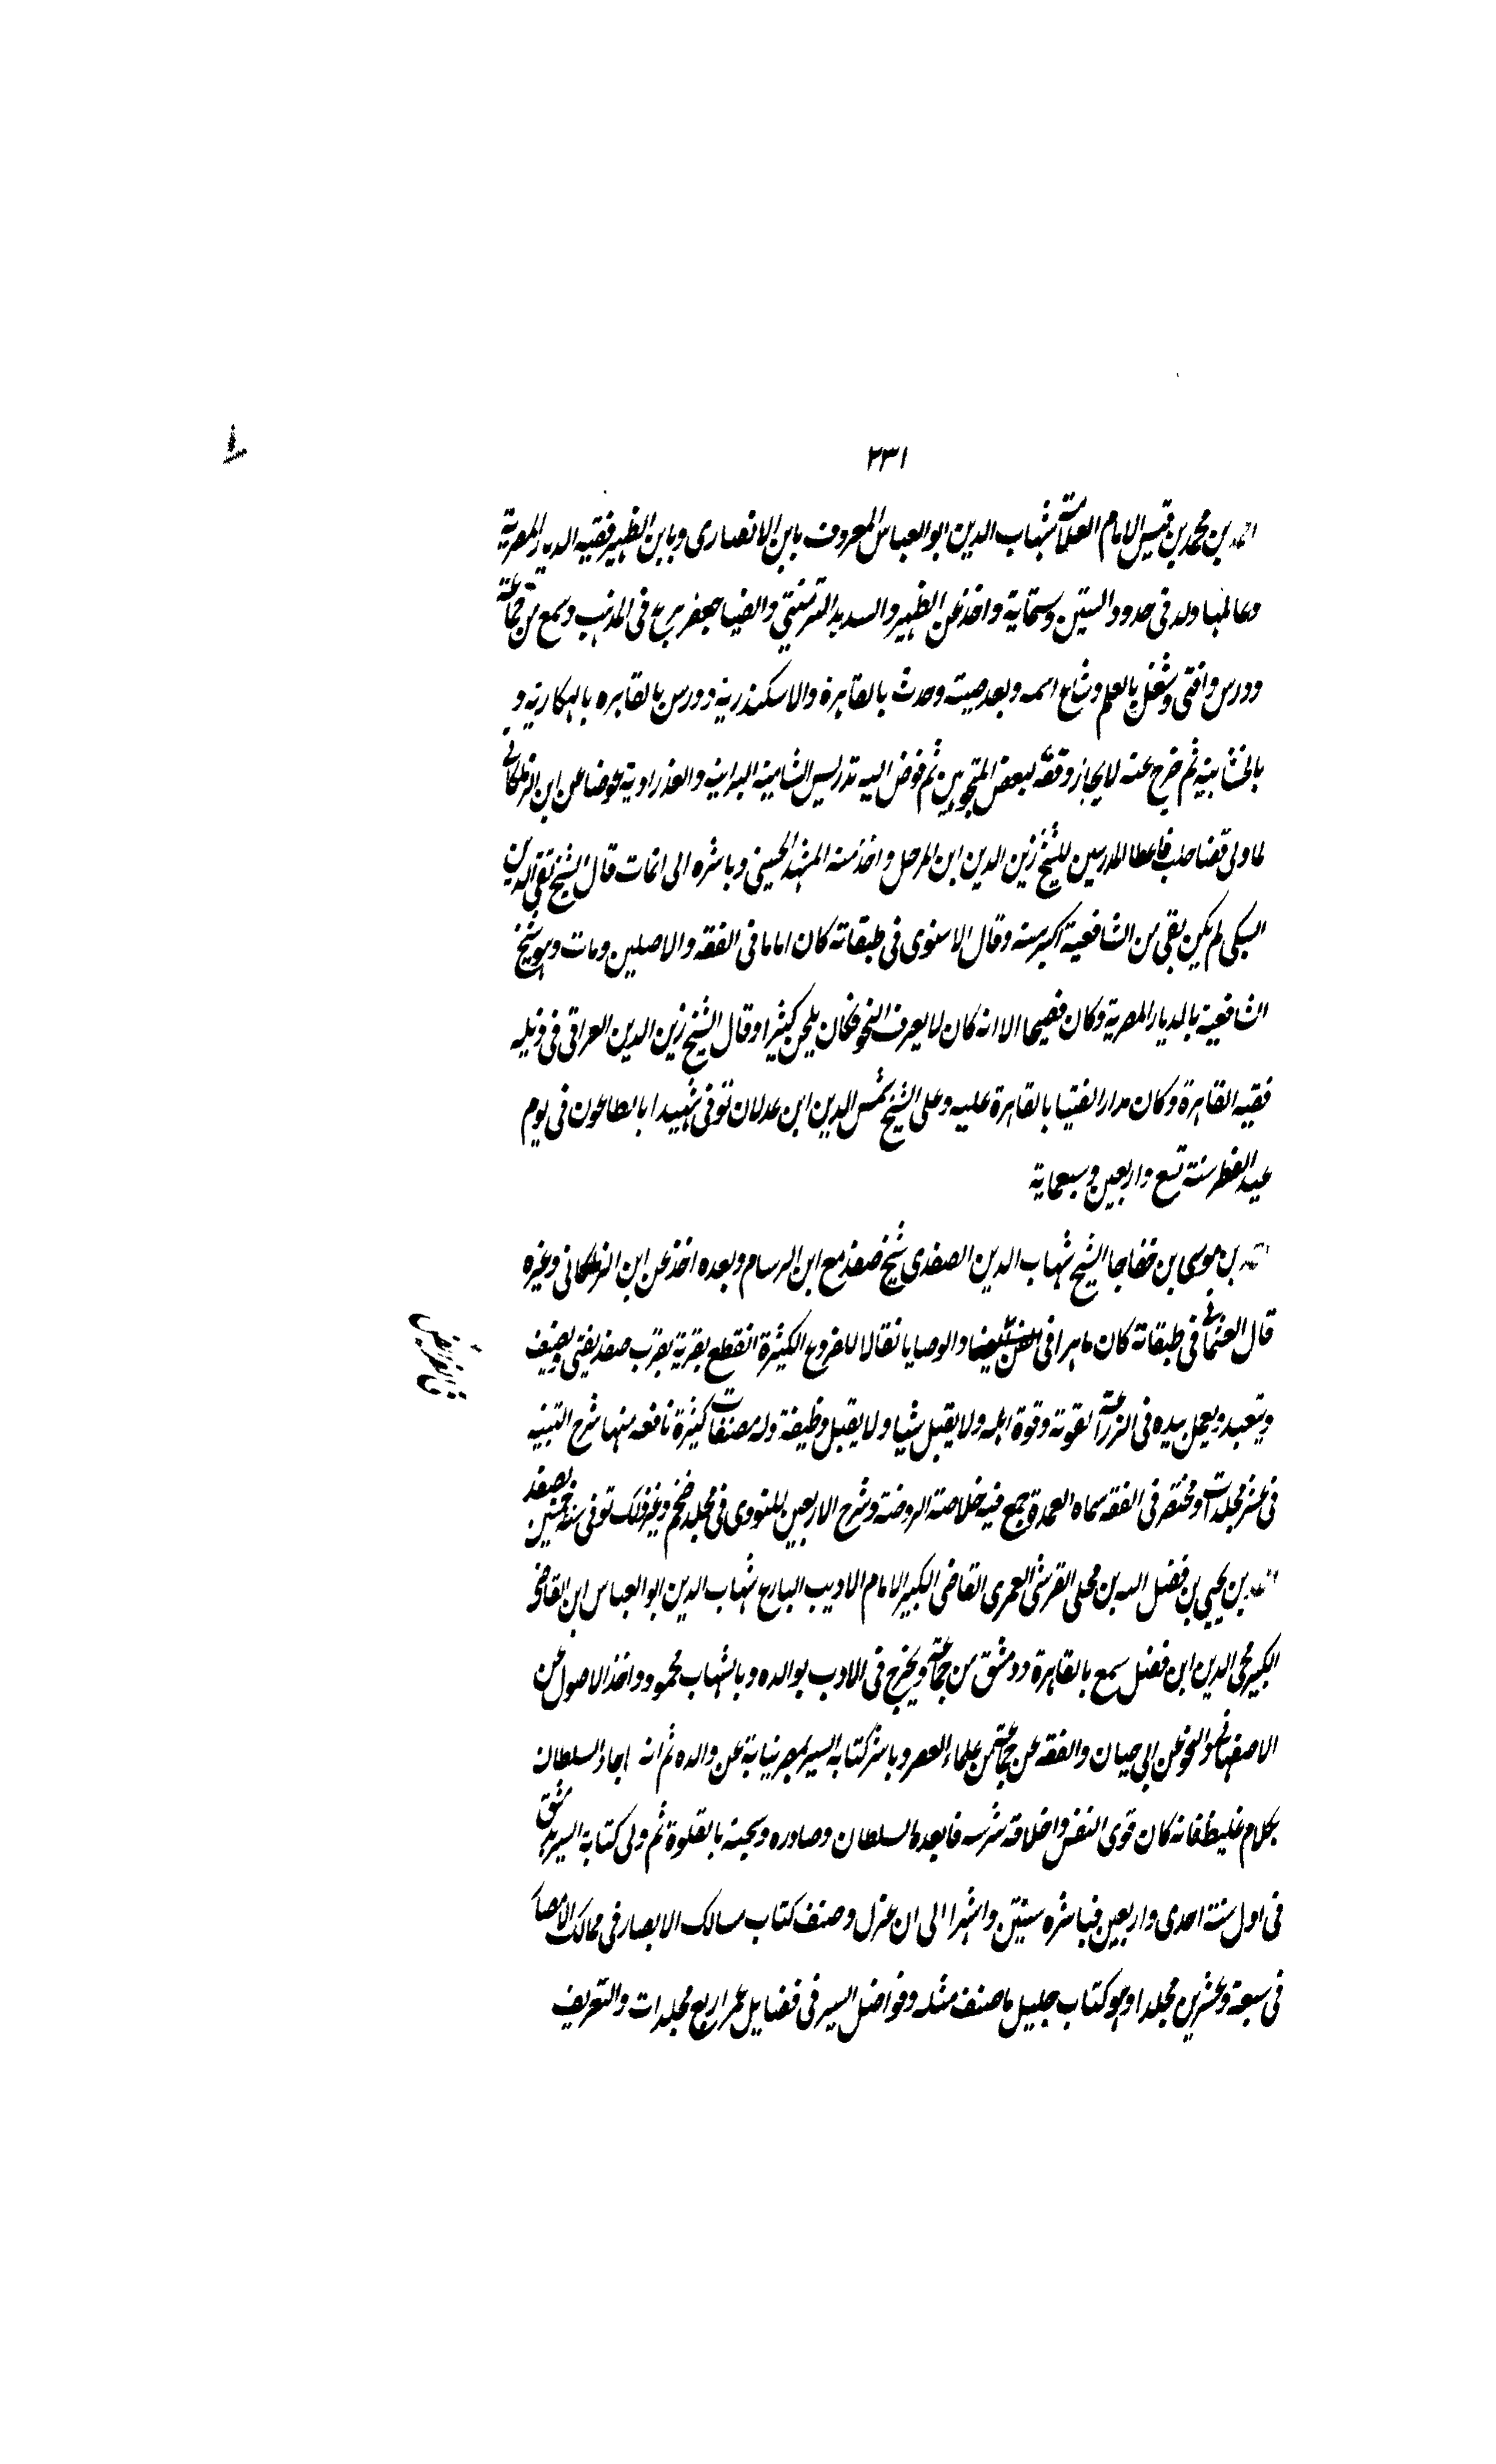 ٢٣١
احمد بن محمد بن قيس الامام العلامة شهاب الدين ابو العباس المعروف بابن الانصارى وبابن الظهير فقيه الديار المصرية
وعالمها ولد فى حدود الستين وستماية واخذ عن الظهير والسديد التزمنتي والضيا جعفر برع فى المذهب وسمع من جماعة
ودرس وافتى وشغل بالعلم وشاع اسمه وبعد صيته وحدث بالقاهرة والاسكندرية ودرس بالقاهره بالهكارية و
بالخشابية ثم خرج عنه لايجاز وقفه لبعض المتجوهين ثم فوض اليه تدريس الشامية البرانية والعذراوية عوضا عن ابن الزملكانى
لما ولى قضا حلب فاعطا المدرسين للشيخ زين الدين ابن المرحل واخذ منه المشهد الحسينى وباشره الى ان مات قال الشيخ تقى الدين
السبكى لم يكن بقى من الشافعية اكبر منه وقال الاسنوى فى طبقاته كان اماما فى الفقه والاصلين ومات وهو شيخ
الشافعية بالديار المصرية وكان فصيحا الا انه كان لا يعرف النحو فكان يلحن كثيرا وقال الشيخ زين الدين العراقى فى ذيله
فقيه القاهرة وكان مدار الفتيا بالقاهرة عليه وعلى الشيخ شمس الدين ابن عدلان توفى شهيدا بالطاعون فى يوم
عيد الفطر سنة تسع واربعين وسبعماية
احمد بن موسى بن خفاجا الشيخ شهاب الدين الصفدى شيخ صفد مع ابن الرسام وبعده اخذ عن ابن الزملكانى وغيره
قال العثمانى فى طبقاته كان ماهرا فى والوصايا نقالا للفروع الكثيرة انقطع بقرية بقرب صفد يفتى ويصنف
فى الفرائض
ويتعبد ويعمل بيده فى الزراعة لقوته وقوة اهله ولا يقبل شيا ولا يقبل وظيفة وله مصنفات كثيرة نافعه منها شرح التنبيه
فى عشر مجلدات ومختصر فى الفقه سماه العمدة جمع فيه خلاصة الروضة وشرح الاربعين للنووى فى مجلد ضخم وغير ذلك توفى سنة خمسين بصفد
احمد بن يحيى بن فضل الله بن محلى القرشى العمرى القاضى الكبير الامام الاديب البارع شهاب الدين ابو العباس ابن القاضى
الكبير محى الدين ابن فضل سمع بالقاهرة ودمشق من جماعة وتخرج فى الادب بوالده وبالشهاب محمود واخذ الاصول عن
الاصفهانى والنحو عن ابى حيان والفقه عن جماعة من علماء العصر وباشر كتابة السر بمصر نيابة عن والده ثم انه اجاد السلطان
بكلام غليظ فانه كان قوى النفس واخلاقه شرسه فابعده السلطان وصادره وسجنه بالقلوة ثم ولى كتابة السر بدمشق
فى اول سنة احدى واربعين فباشره سنتين واشهرا الى ان عزل وصنف كتاب مسالك الابصار فى ممالك الامصار
فى سبعة وعشرين مجلدا وهو كتاب جليل ما صنف مثله وفواضل السمر فى فضايل عمر اربع مجلدات والتعريف